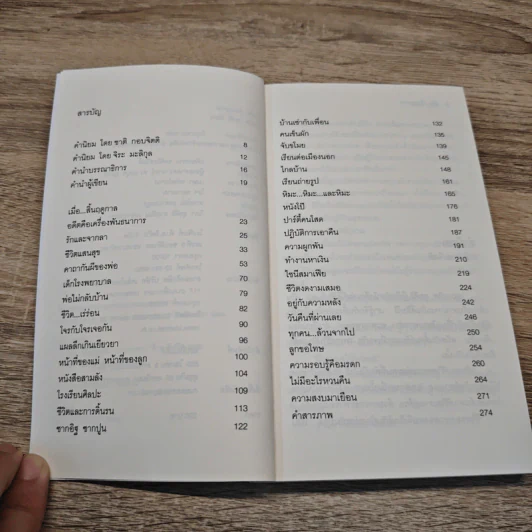 สารบัญ
คำนิยม โดย ชาติ กอบจิตติ 8
คำนิยม โดย จิระ มะลิกุล 12
คำนำบรรณาธิการ 16
คำนำผู้เขียน 19
เมื่อ...สิ้นฤดูกาล
อดีตคือเครื่องพันธนาการ 23
รักและจากลา 25
ชีวิตแสนสุข 33
คาถากันผีของพ่อ 53
เด็กโรงพยาบาล 70
พ่อไม่กลับบ้าน 79
ชีวิต...เร่ร่อน 82
โจรกับโจรเจอกัน 90
แผลลึกเกินเยียวยา 96
หน้าที่ของแม่ หน้าที่ของลูก 100
หนังสือสามลัง 104
โรงเรียนศิลปะ 109
ชีวิตและการดิ้นรน 113
ซากอิฐ ซากปูน 122
บ้านเช่ากับเพื่อน 132
คนเข็นผัก 135
จับขโมย 139
เรียนต่อเมืองนอก 145
ไกลบ้าน 148
เรียนถ่ายรูป 161
หิมะ...หิมะ...และหิมะ 165
หนังโป๊ 176
ปาร์ตี้คนโสด 181
ปฏิบัติการเอาคืน 187
ความผูกพัน 191
ทำงานหาเงิน 210
ไชนีสมาเฟีย 219
ชีวิตงดงามเสมอ 224
อยู่กับความหลัง 242
วันคืนที่ผ่านเลย 246
ทุกคน...ล้วนจากไป 250
ลูกขอโทษ 254
ความรอบรู้คือมรดก 260
ไม่มีอะไรหวนคืน 264
ความสงบมาเยือน 271
คำสารภาพ 274